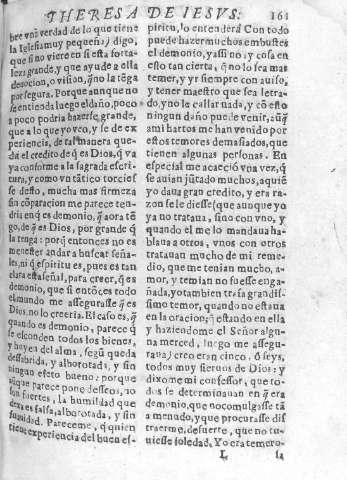 THERESA DE IESVS. 161
bre vnà verdad de lo que tiene
la Iglesia muy pequeña) digo,
que si no viere en si esta forta-
leza grande, y que ayude a ella
deuocion, o vision, q̃ no la tẽga
por segura. Porque aunque no
se entienda luego el daño, poco
a poco podria hazerse grande,
que a lo que yo veo, y se de ex
periencia, de tal manera que-
da el credito de q̃ es Dios, q̃ va
ya conforme a la sagrada escri
tura, y como vn tãtico torcies
se desto, mucha mas firmeza
sin cõparacion me parece ten-
dria en q̃ es demonio, q̃ aora tẽ
go, de q̃ es Dios, por grande q̃
la tenga: porq̃ entonces no es
menester andar a buscar seña-
les, ni q̃ espiritu es, pues es tan
clara esta señal, para creer, q̃ es
demonio, que si entõces todo
el mundo me assegurasse q̃ es
Dios, no lo creeria. El caso es, q̃
quando es demonio, parece q̃
se esconden todos los bienes,
y huyen del alma, segũ queda
dessabrida, y alborotada, y sin
ningun efeto bueno: porque
aunque parece pone desseos, no
son fuertes, la humildad que
dexa es falsa, alborotada, y sin
suauidad. Pareceme, q̃ quien
tiene experiencia del buen es-
piritu, lo entenderà Con todo
puede hazer muchos embustes
el demonio, y assi no ay cosa en
esto tan cierta, q̃ no lo sea mas
temer, y yr siempre con auiso,
y tener maestro que sea letra-
do, y no le callar nada, y cõ esto
ningun daño puede venir, aũq̃
a mi hartos me han venido por
estos temores demasiados, que
tienen algunas personas. En
especial me acaeciò vna vez, q̃
se auian jũtado muchos, a quiẽ
yo daua gran credito, y era ra-
zon se le diesse (que aunque yo
ya no trataua, sino con vno, y
quando el me lo mandaua ha-
blaua a otros, vnos con otros
tratauan mucho de mi reme-
dio, que me tenian mucho, a-
mor, y temian no fuesse enga-
ñada, yo tambien traìa grandis-
simo temor, quando no estaua
en la oracion, q̃ estando en ella
y haziendome el Señor algu-
na merced, luego me assegu-
raua) creo eran cinco, ò seys,
todos muy sieruos de Dios: y
dixome mi confessor, que to-
dos se determinauan en q̃ era
demonio, que no comulgasse tã
a menudo, y que procurasse dis
traerme, de suerte, que no tu-
uiesse soledad. Yo era temero-
L sa